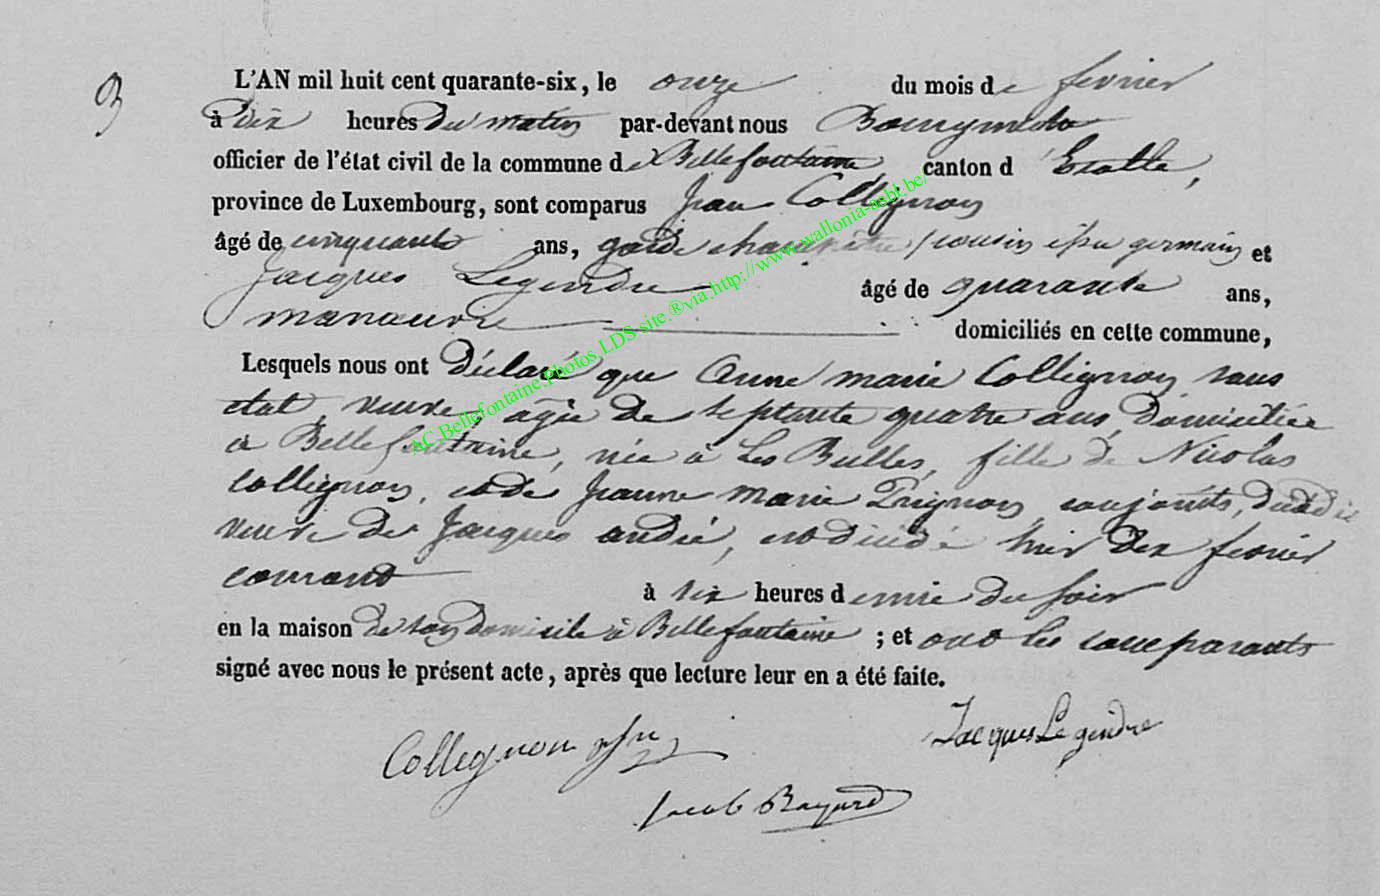 3
L'AN mil huit cent quarante-six, le onze du mois de fevrier
à dix heures du matin par-devant nous Bourgmestre
officier de l'état civil de la commune de Bellefontaine canton d'Etalle,
province de Luxembourg, sont comparus Jean Collignon
âgé de cinquante ans, garde champêtre, cousin issu germain et
Jacques Legendre âgé de quarante ans,
manœuvre domiciliés en cette commune,
Lesquels nous ont déclaré que Anne marie Collignon sans
état, veuve, agée de septante quatre ans, domiciliée
à Bellefontaine, née à Les Bulles, fille de Nicolas
Collignon, et de Jeanne Marie conjoints, décédés
veuve de Jacques andré, est décédée hier dix fevrier
courant à six heures demie du soir
en la maison de son domicile à Bellefontaine ; et ont les comparants
signé avec nous le présent acte, après que lecture leur en a été faite.
Collignon Jn
Jacques Legendre
Jacob Bayard
AC.Bellefontaine.Photos.LDS site.®via.http://www.wallonia-asbl.be/